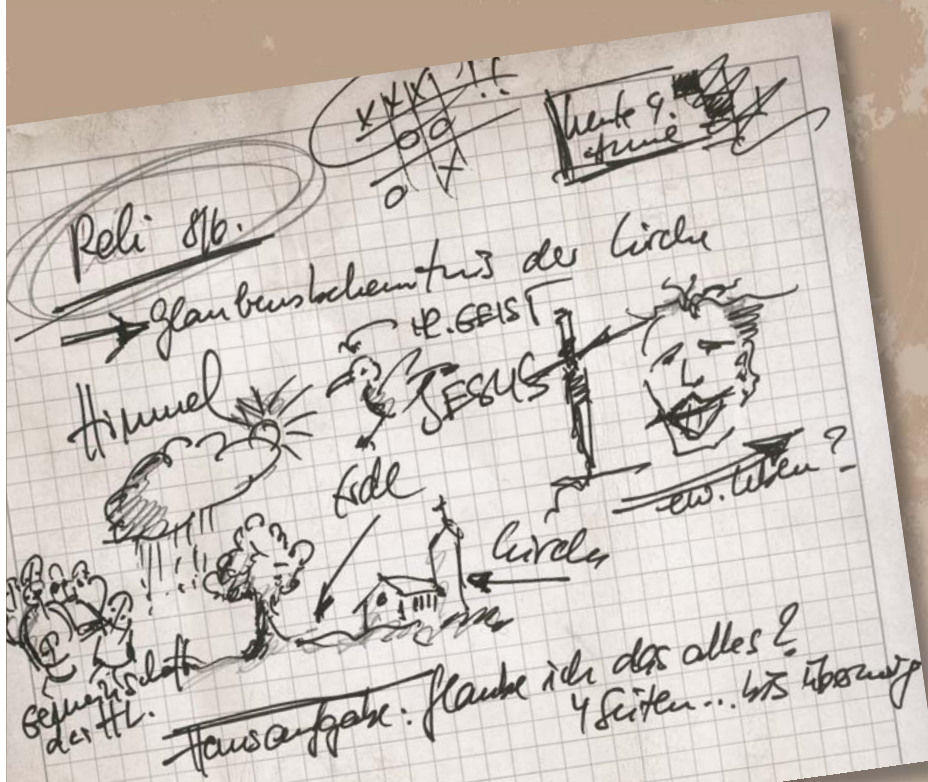 heute 9.
Reli 8/6.
→ Glaubensbekenntnis der Kirche
Hl. GEIST
Himmel
JESUS
Erde
ew. Leben?
Kirche
Gemeinschaft
der Hl.
Hausaufgabe: Glaube ich das alles?
4 Seiten... bis übermorg